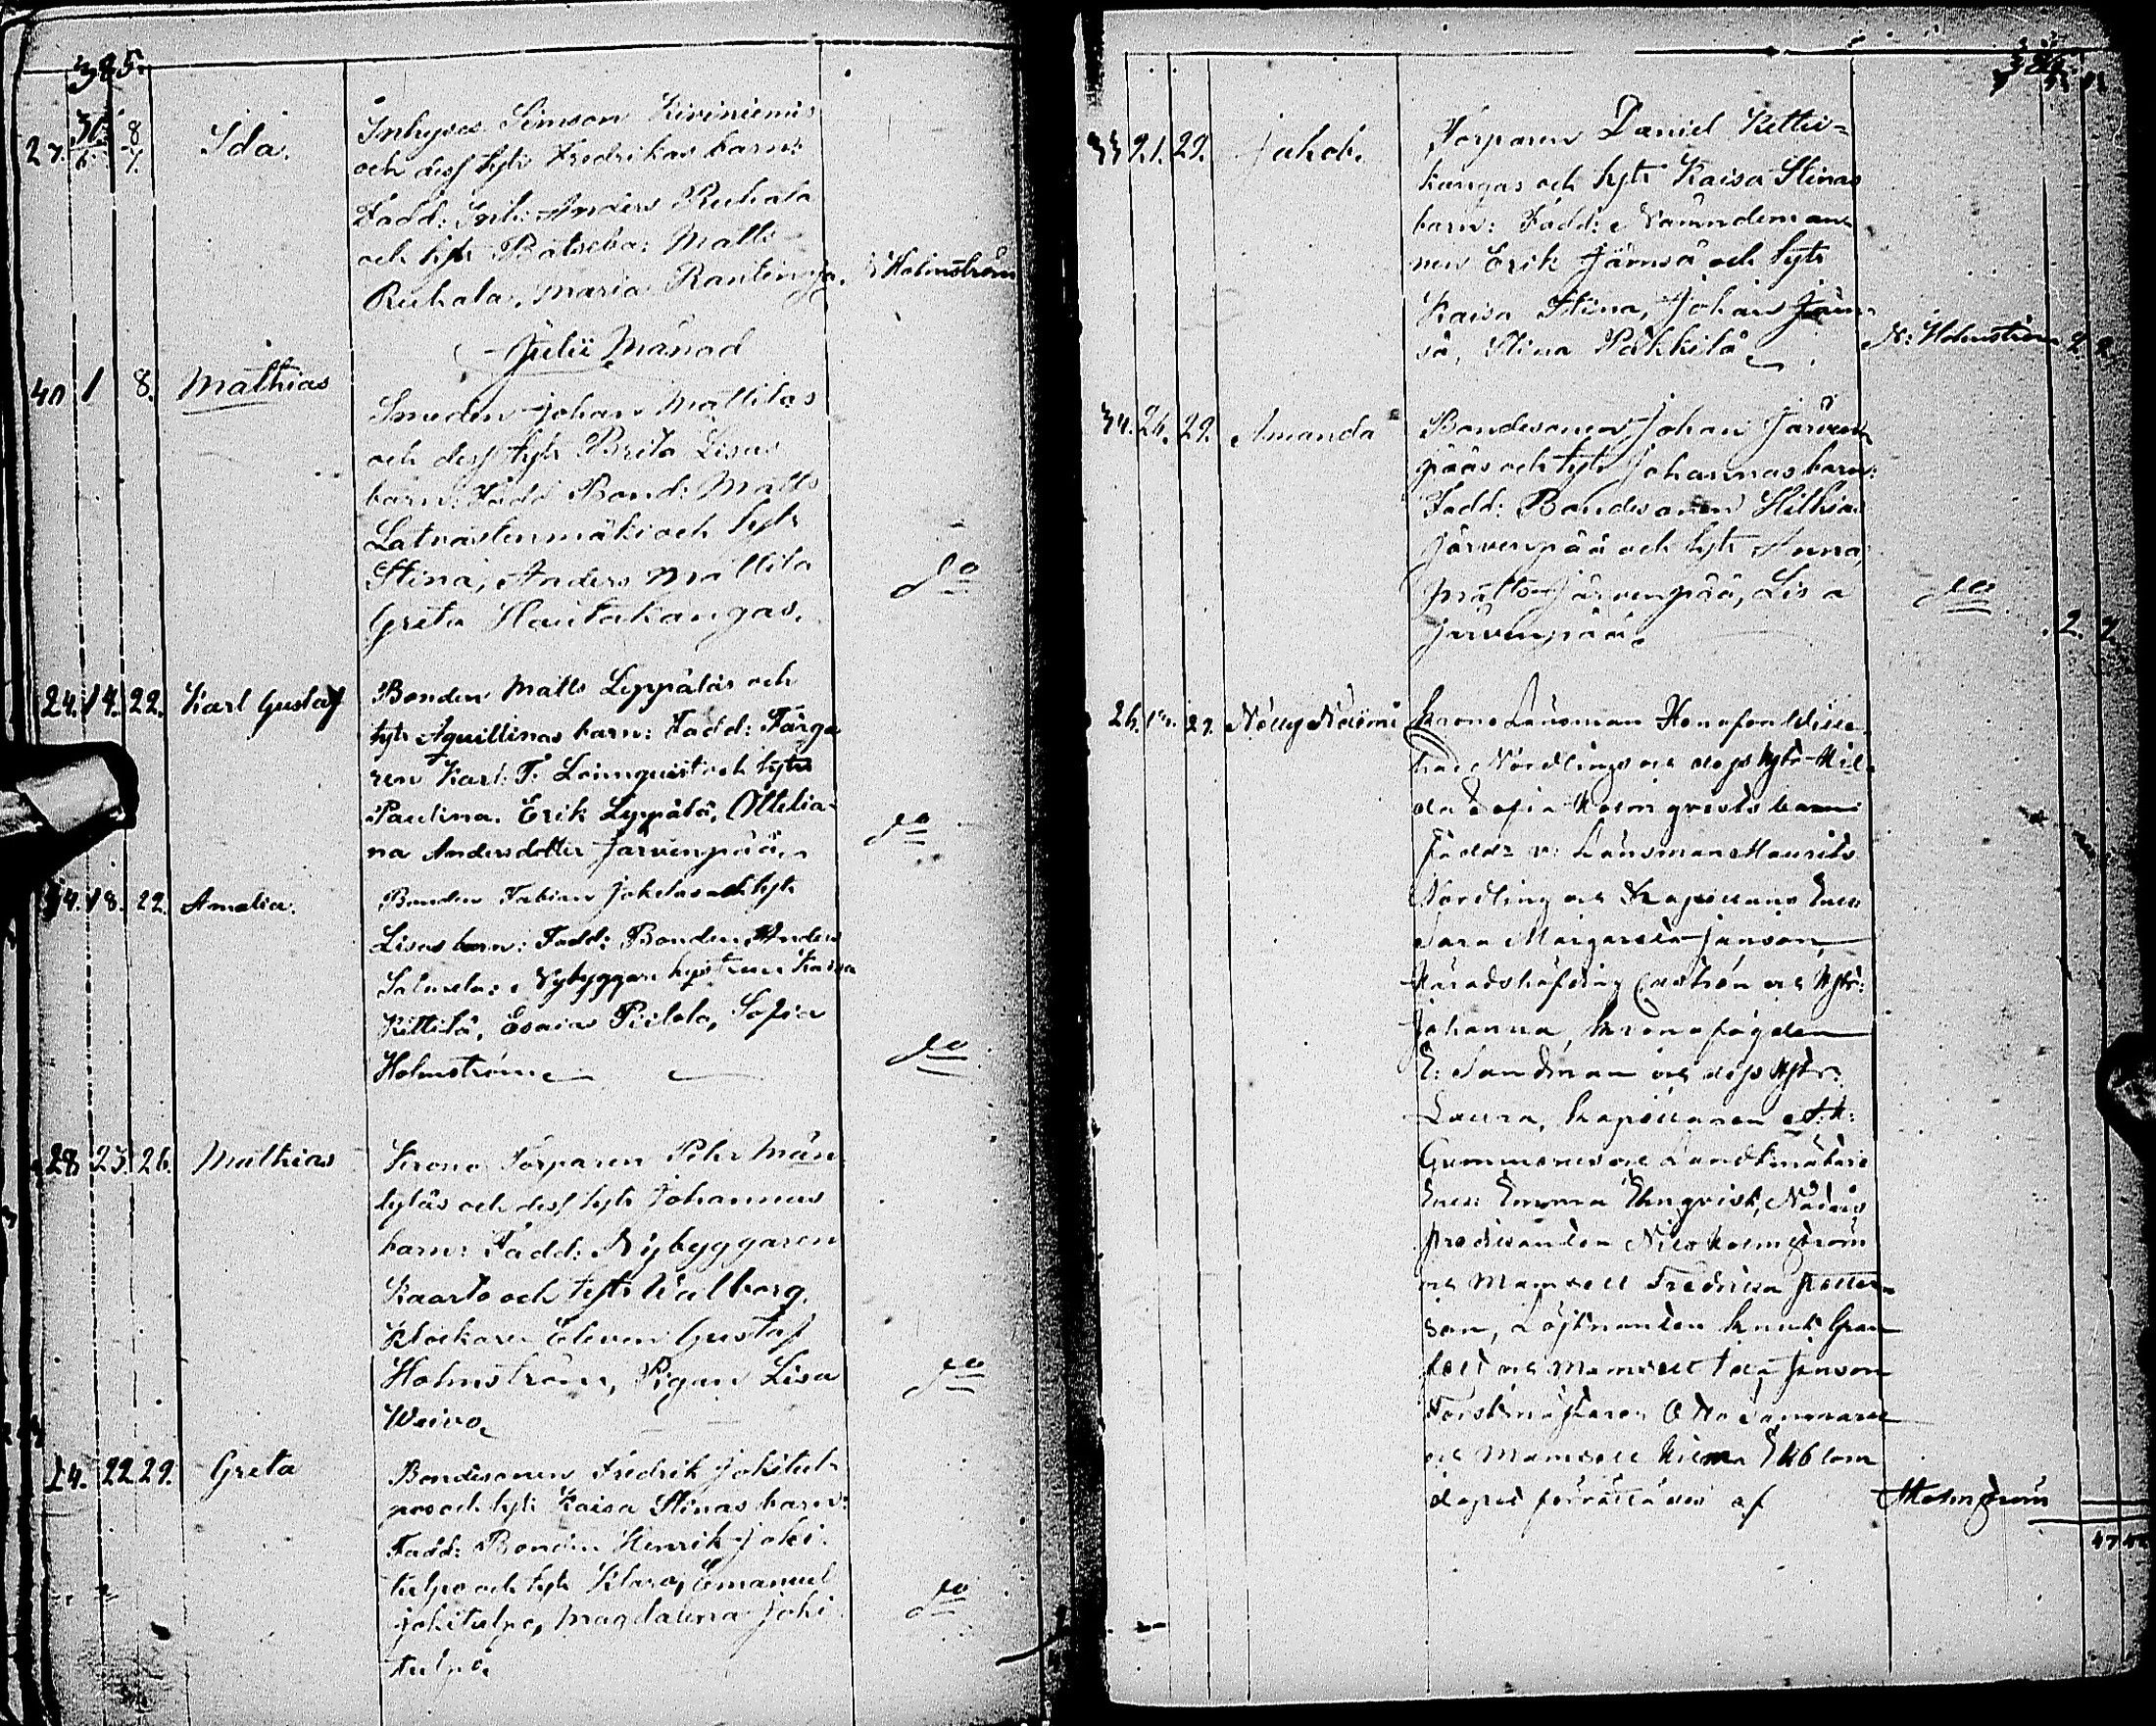 325.
27. 30/6 8/7. Ida. Inhyses Simson Kiviniemis
och dess hstr Fredrikas barn:
Fadd: Inh: Anders Ruhala
och hstr Batseba: Matts
Ruhala, Maria Rantingja. Holmström
Julii Månad
40 1 8. Mathias
Smeden Johan Mattilas
och dess hstr Brita Lisas
barn: Fadd Bond: Matts
Latvastenmäki och hstr
Stina, Anders Mattila
Greta Hautakangas. do
24. 14. 22. Karl Gustaf Bonden Matts Leppäläs och
hstr Aquillinas barn: Fadd: Färga
ren Karl: F. Lönnquist och hstr
Paulina. Erik Leppälä, Ottilia
na Andersdotter Järvenpää. do
34. 18. 22. Amalia. Bonden Fabian Jokelas och hstr
Lisas barn: Fadd: Bonden Anders
Salmela: Nybyggare hustrun Kaisa
Kittilä, Esaias Pielola, Sofia
Holmström do
28 23. 26. Mathias Krono Torparen Pehr Män
tyläs och dess hstr Johannas
barn: Fadd: Nybyggaren
Kaarto och hstr Walborg,
Klockare Eleven Gustaf
Holmström, Pigan Lisa do
Weivo
24. 22 29. Greta Bondesonen Fredrik Jokitul
pos och hstr Kaisa Stinas barn:
Fadd: Bonden Henrik Joki
tulpo och hstr Klara, Emanuel
Jokitulpo, Magdalena Joki do
tulpo.
33 21. 29. Jakob. Torparen Daniel Kettu=
kangas och hstr Kaisa Stinas
barn: Fadd: Nämndeman
nen Erik Jämsä och hstr
Kaisa Stina, Johan Jäm
sä, Stina Pahkila N: Holmström 2 2
34. 24. 29. Amanda Bondesonen Johan Järven
pääs och hstr Johannas barn:
Fadd: Bondesonen Hilkias
Järvenpää och hstr Anna,
Matts Järvenpää, Lisa do
Järvenpää. 2. 2
26. 27. Nelly Naimi Krono Länsman
Nordlings och dess hstr Hil
da Sofia Holmqvists barn
Fadd: v: Länsman Maurits
Nordling och Kapellans Enka
Sara Margareta Janson,
Häradshöfding Castrén och hstr:
Johanna, Kronofogden
E: Sandman och dess hstr:
Laura, Kapellanen
Gummerus och Landtmätare
Enka Emma Elmqvist, Nådårs
predikanten Nils Holmström
och Mamsell Fredrika Petter
son, Löjtnanten Knut Gran
felt och Mamsell Janson
Forstmästaren Otto
och Mamsell Ekblom
dopet förrättades af Holmström